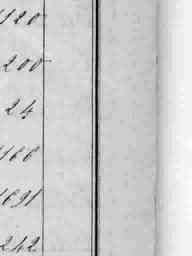 120
200
24
166
1691
242